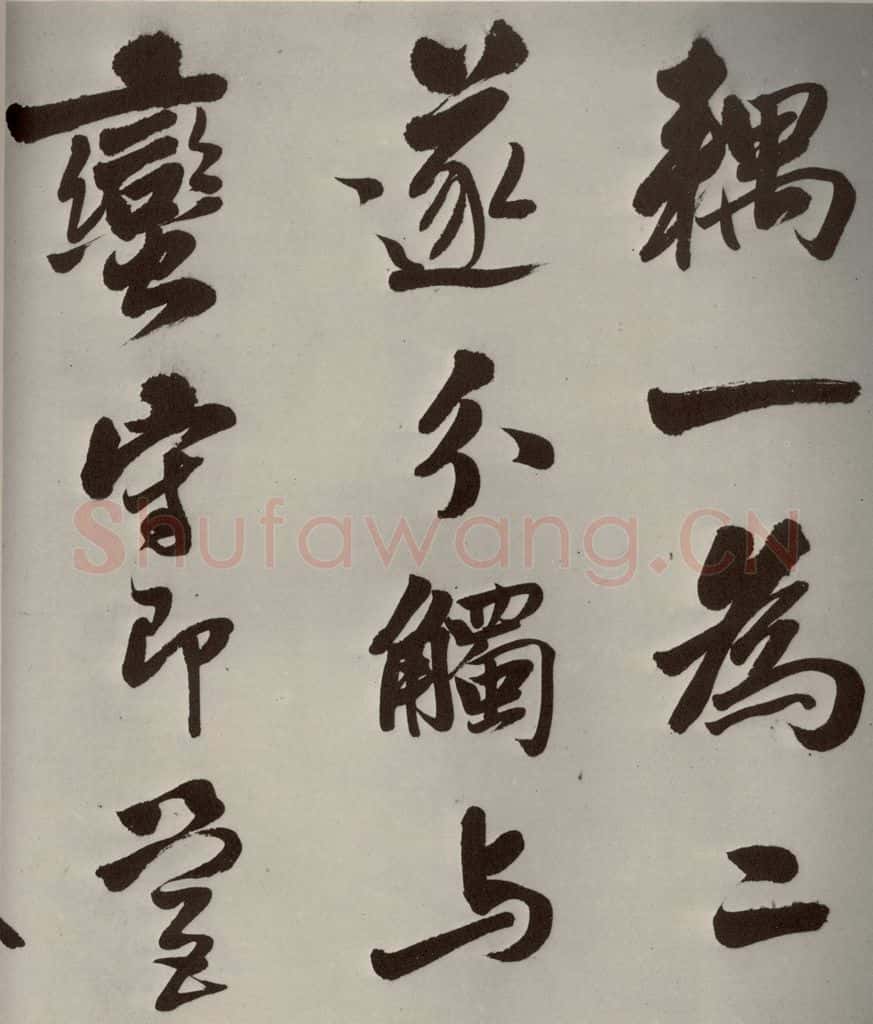 耦一為二
遂分觸与
蠻守即营
Shufawang.CN